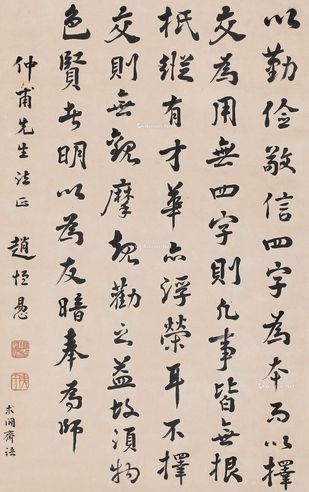 以勤儉敬信四字為本而以擇
交為用無四字則凡事皆無根
柢縱有才華亦浮榮耳不擇
交則無觀摩規勸之益故須物
色賢者明以為友暗奉為師
仲甫先生法正
趙恒惖
求闕齋語